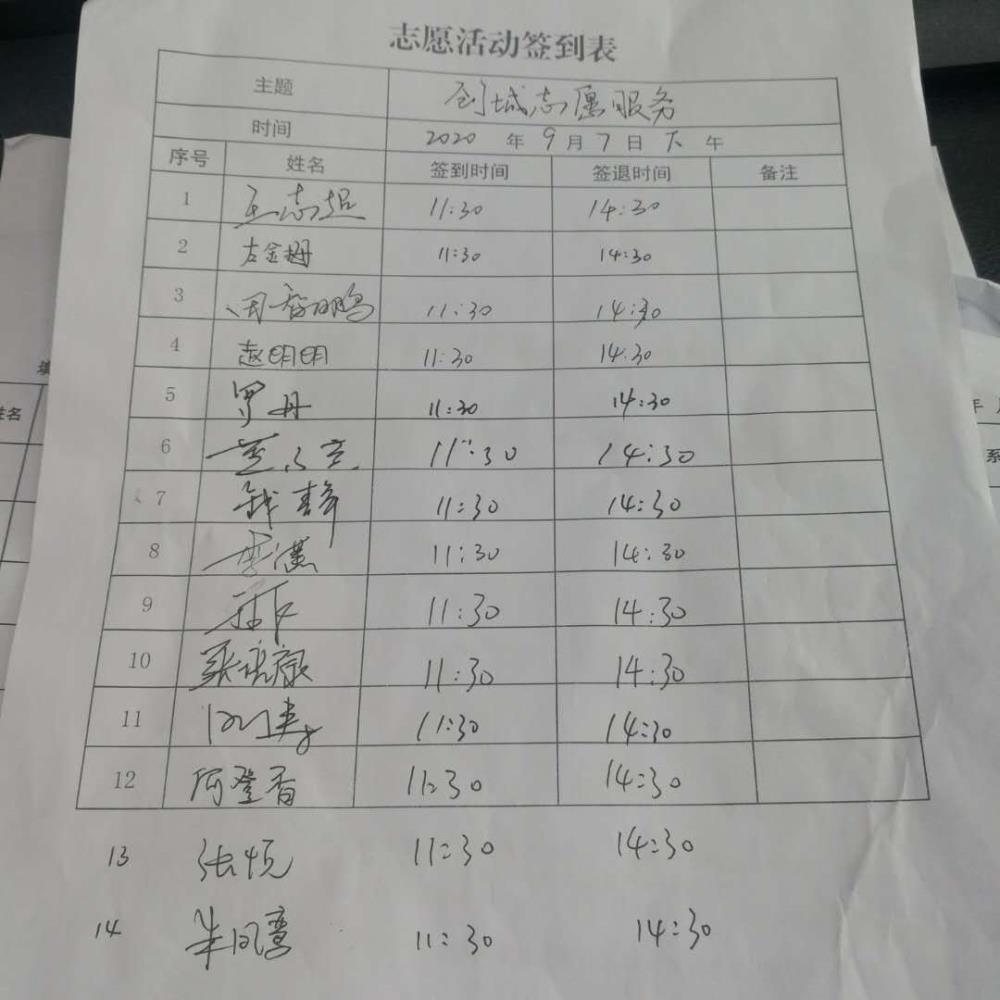 志愿活动签到表
主题 创城志愿服务
时间 2020 年 9 月 7 日 下 午
序号 姓名 签到时间 签退时间 备注
1 王志超 11:30 14:30
2 古金 11:30 14:30
3 周香鹏 11:30 14:30
4 赵明明 11:30 14:30
5 罗丹 11:30 14:30
6 11:30 14:30
7 钱静 11:30 14:30
8 李潇 11:30 14:30
9 11:30 14:30
10 11:30 14:30
11 11:30 14:30
12 阿登香 11:30 14:30
13 张悦 11:30 14:30
14 朱凤鸾 11:30 14:30
姓名
年
系